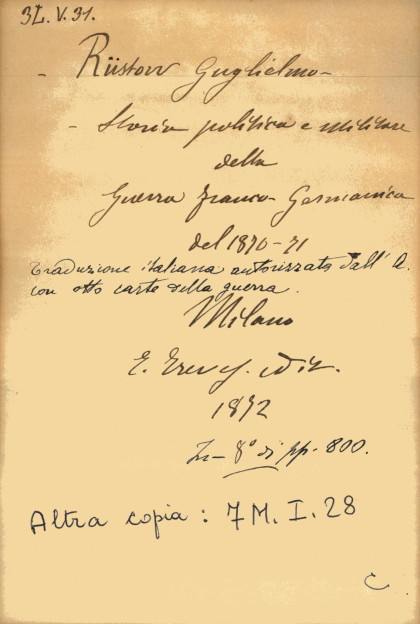 3L.V.31.
- Rüstow Guglielmo -
- Storia politica e militare
della
Guerra Franco-Germanica
del 1870-71
traduzione italiana autorizzata dall'A.
con otto carte della guerra.
Milano
E. Treves. edit.
1872
In-8° di pp. 800.
Altra copia: 7M.I.28
C.